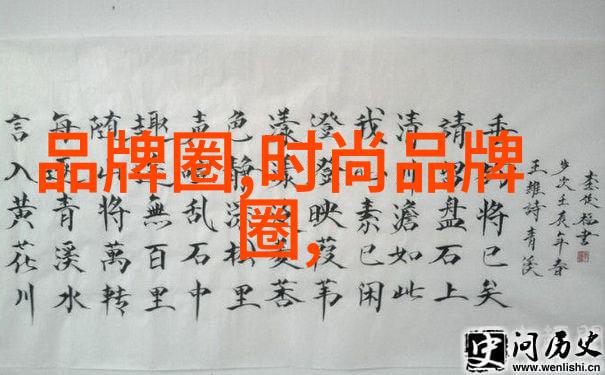 品牌圈,时尚品牌
圈,
言入黄花川
每逐青溪水
随山将萬转
趣途無百里
声喧乱石中
色静深松里
漾漾泛菱荇
澄澄映葭苇
我心素已闲
清川澹如此
請留盘石上
垂钓将已矣
王維詩青溪
岁次壬辰年春
问历史
www.wenlishi.cn